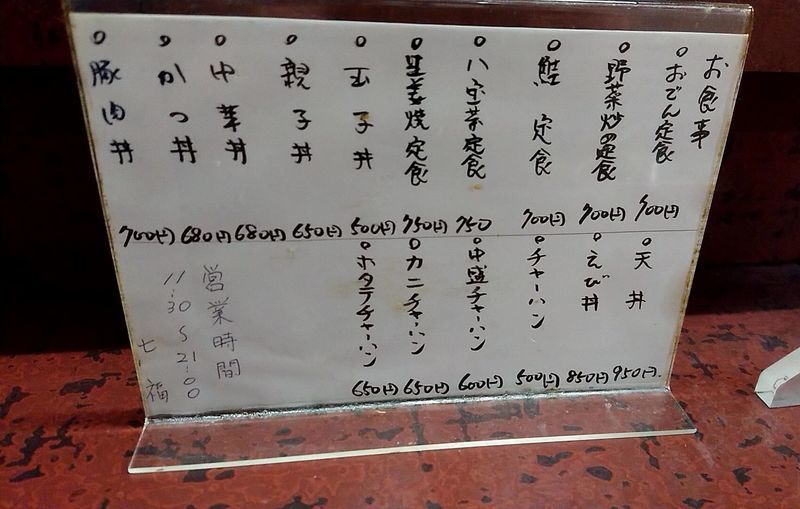 お食事
○おでん定食 700円
○野菜炒め定食 700円
○鮭定食 700円
○八宝菜定食 750
○生姜焼定食 750円
○玉子丼 500円
○親子丼 650円
○中華丼 680円
○かつ丼 680円
○豚肉丼 700円
○天丼 950円.
○えび丼 850円
○チャーハン 500円
○中盛チャーハン 600円
○カニチャーハン 650円
○ホタテチャーハン 650円
営業時間
11:30〜21:00
七福